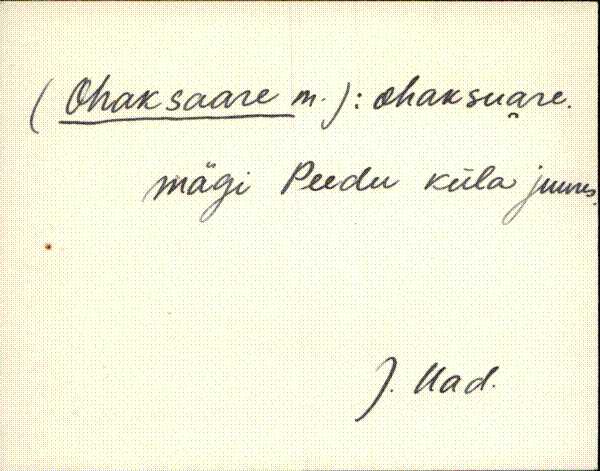 (Ohaksaare m.): ohaksu̯are.
mägi Peedu küla juures.
J. Mad.